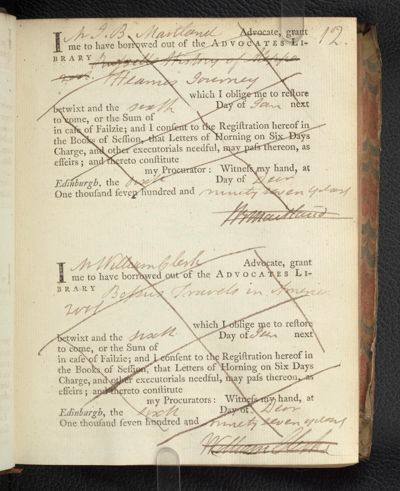 12.
I Mr J. B. Maitland Advocate, grant
me to have borrowed out of the ADVOCATES LI-
BRARY Russell's History of Aleppo
Journey
which I oblige me to reſtore
betwixt and the sixth Day of Jan next
to come, or the Sum of
in caſe of Failzie; and I conſent to the Regiſtration hereof in
the Books of Seſſion, that Letters of Horning on Six Days
Charge, and other executorials needful, may paſs thereon, as
effeirs; and thereto conſtitute
my Procurator: Witneſs my hand, at
Edinburgh, the sixth Day of Decr
One thouſand ſeven hundred and ninety seven years
Maitland
I Mr William Clerk Advocate, grant
me to have borrowed out of the ADVOCATES LI-
BRARY Travels in America
which I oblige me to reſtore
betwixt and the sixth Day of Jan next
to come, or the Sum of
in caſe of Failzie; and I conſent to the Regiſtration hereof in
the Books of Seſſion, that Letters of Horning on Six Days
Charge, and other executorials needful, may paſs thereon, as
effeirs; and thereto conſtitute
my Procurators: Witneſs my hand, at
Edinburgh, the sixth Day of Decr
One thouſand ſeven hundred and ninety seven years
William Clerk